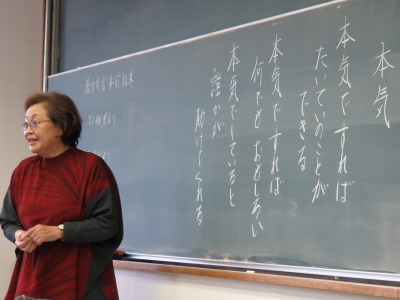 本気
本気ですれば
たいていのことが
できる
本気ですれば
何でもおもしろい
本気でしていると
誰かが
助けてくれる
教育実習事前指導